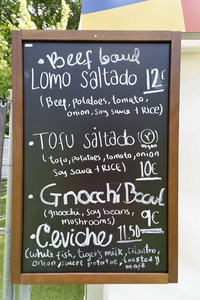 • Beef bowl
LOMO SALTADO 12€
(Beef, potatoes, tomato,
onion, soy sauce + RICE)
• TOFU saltado (V)
vegan
(tofu, potatoes, tomato, onion
soy sauce + RICE) 10€
• Gnocchi Bowl
(gnocchi, soy beans,
mushrooms) 9€
• Ceviche 11,50
(white fish, tiger's milk, cilantro,
onion, sweet potatoe, toasted